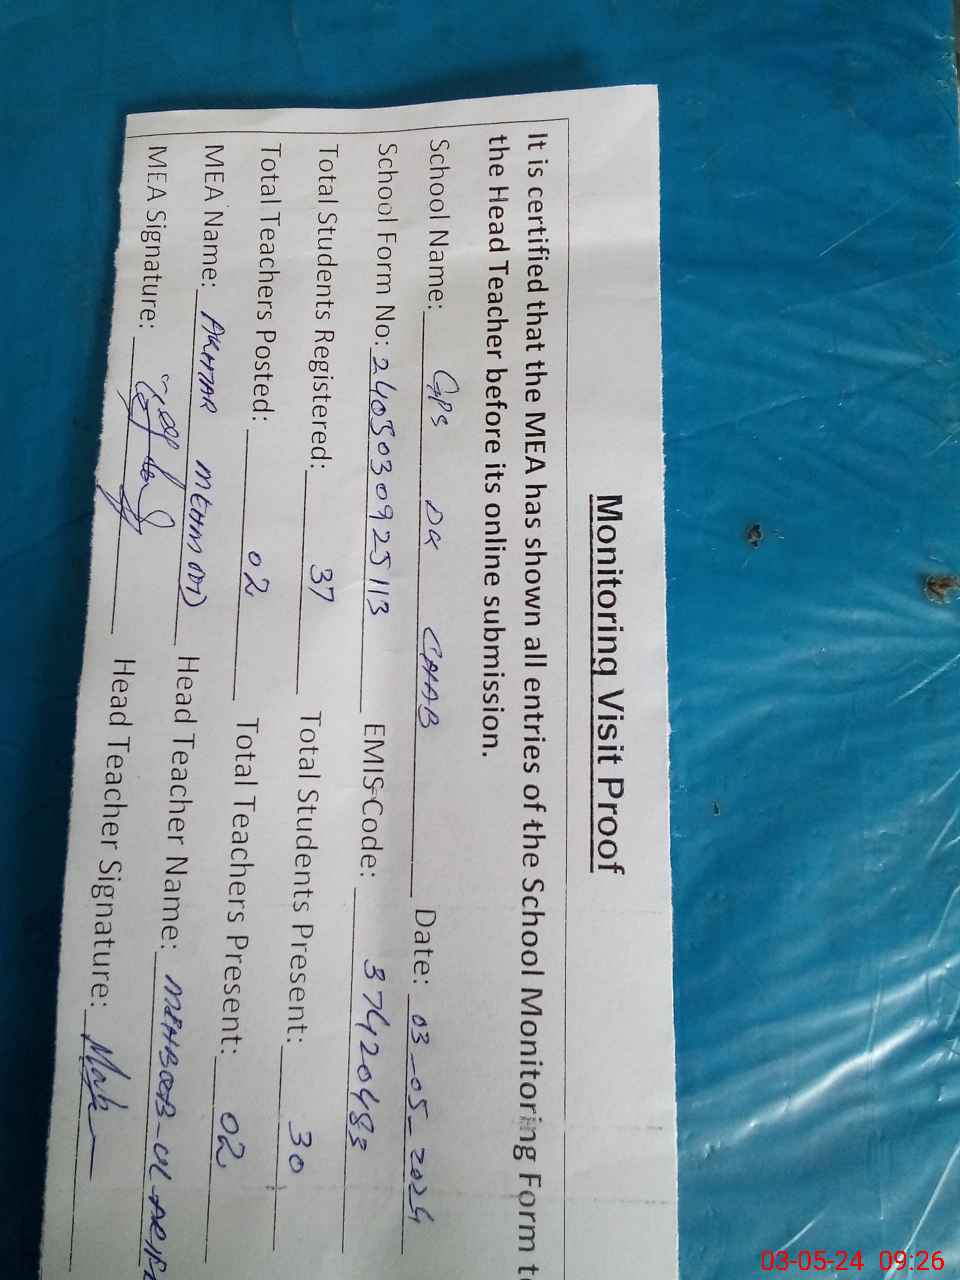 Monitoring Visit Proof
It is certified that the MEA has shown all entries of the School Monitoring Form to
the Head Teacher before its online submission.
School Name: GPS DK CHAB Date: 03-05-2024
School Form No: 2403030925113 EMIS Code: 37420483
Total Students Registered: 37 Total Students Present: 30
Total Teachers Posted: 02 Total Teachers Present: 02
MEA Name: AKHTAR MEHMOOD Head Teacher Name: MEHBOOB-UL-
MEA Signature: Head Teacher Signature:
03-05-24 09:26